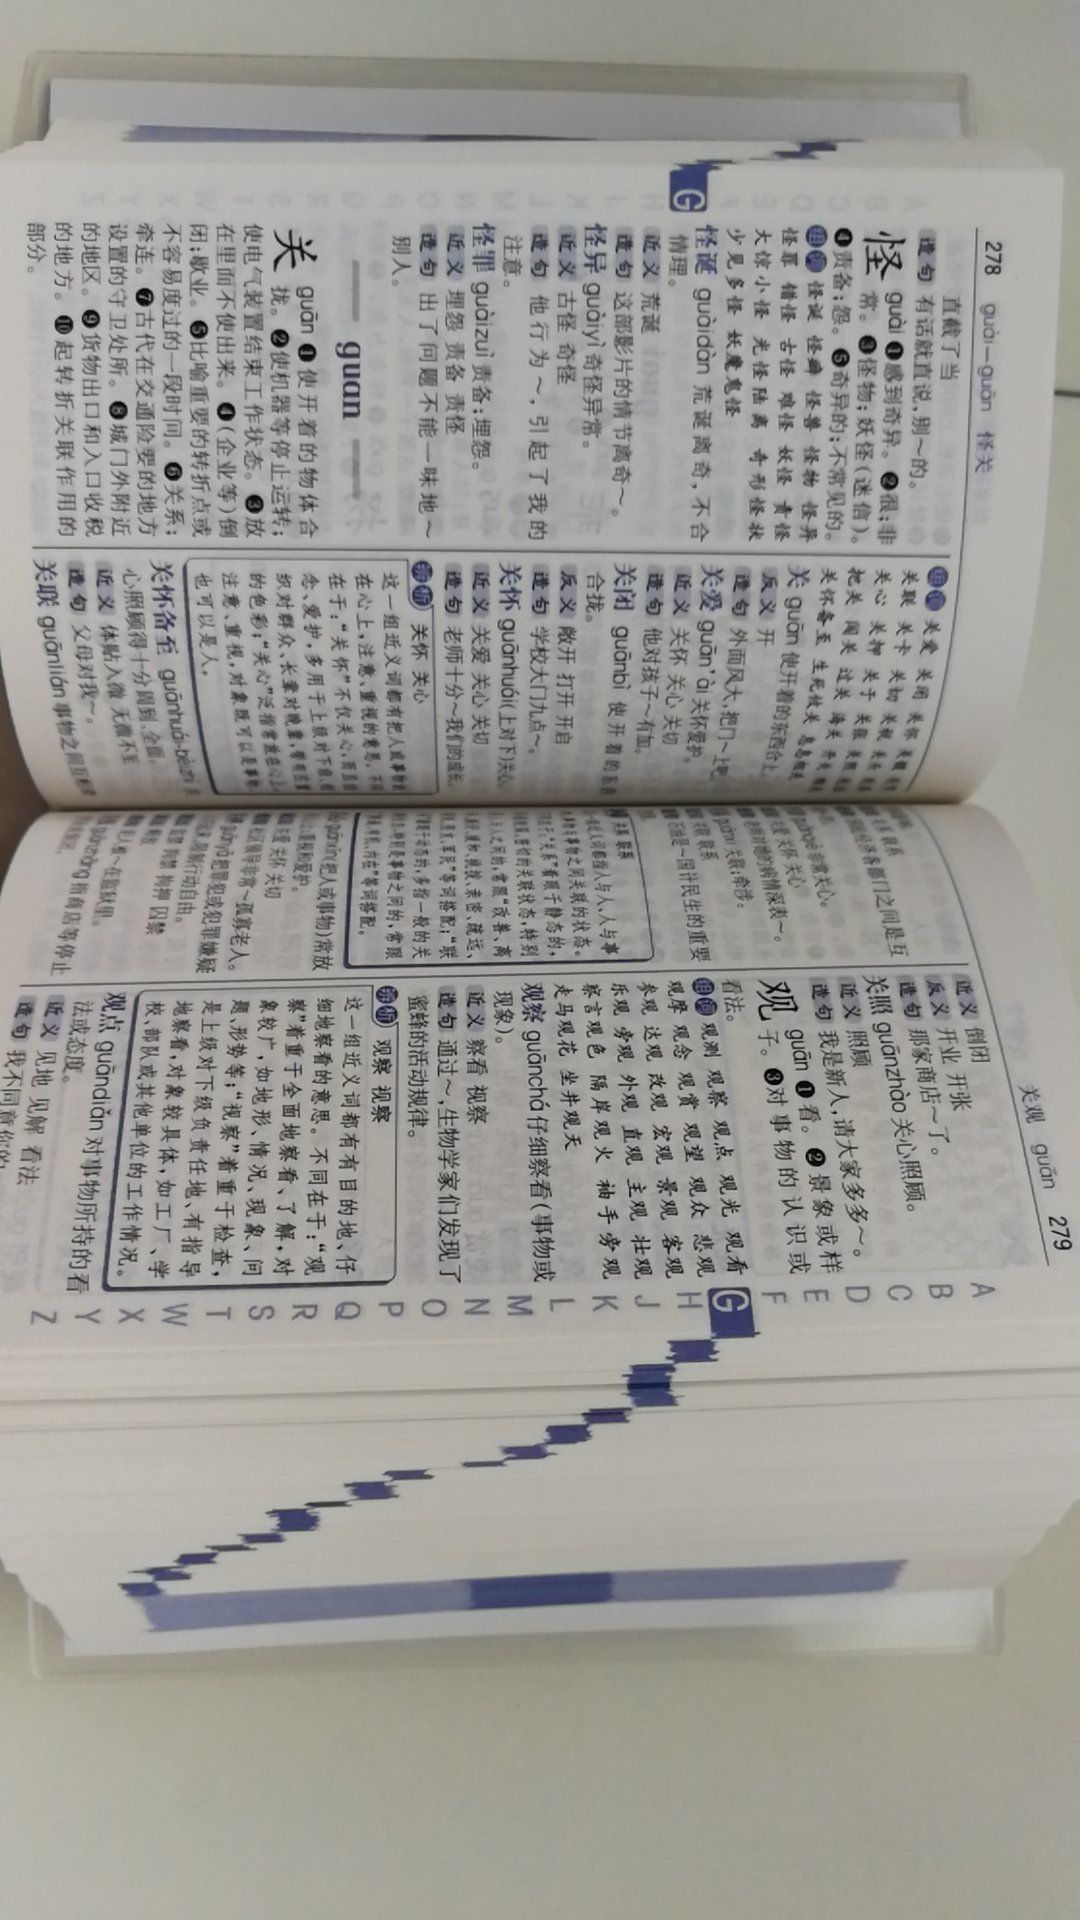 278 guài—guān 怪关
直截了当
造句 有话就直说,别～的。
怪 guài ❶感到奇异。❷很;非
常。❸怪物;妖怪(迷信)。
❹责备;怨。❺奇异的;不常见的。
组词 怪诞 怪癖 怪兽 怪物 怪异
怪罪 错怪 古怪 难怪 妖怪 责怪
大惊小怪 光怪陆离 奇形怪状
少见多怪 妖魔鬼怪
怪诞 guàidàn 荒诞离奇,不合
情理。
近义 荒诞
造句 这部影片的情节离奇～。
怪异 guàiyì 奇怪异常。
近义 古怪 奇怪
造句 他行为～,引起了我的
注意。
怪罪 guàizuì 责备;埋怨。
近义 埋怨 责备 责怪
造句 出了问题不能一味地～
别人。
guan
关 guān ❶使开着的物体合
拢。❷使机器等停止运转;
使电气装置结束工作状态。❸放
在里面不使出来。❹(企业等)倒
闭;歇业。❺比喻重要的转折点或
不容易度过的一段时间。❻关系;
牵连。❼古代在交通险要的地方
设置的守卫处所。❽城门外附近
的地区。❾货物出口和入口收税
的地方。❿起转折关联作用的
部分。
组词 关爱 关闭 关怀
关联 关卡 关切
关心 关押 关于
把关 闯关 过关 海关
关怀备至 生死攸关 息息相关
关 guān 使开着的东西合上
反义 开
造句 外面风大,把门～上吧
关爱 guān'ài 关怀爱护。
近义 关怀 关心 关切
造句 他对孩子～有加。
关闭 guānbì 使开着的东西
合拢。
反义 敞开 打开 开启
造句 学校大门九点～。
关怀 guānhuái (上对下)关心。
近义 关爱 关心 关切
造句 老师十分～我们的成长。
辨析 关怀 关心
这一组近义词都有把人或事物放
在心上,注意、重视的意思。不同
在于:“关怀”不仅关心,而且
念、爱护,多用于上级对下级,组
织对群众、长辈对晚辈,带有庄重
的色彩;“关心”泛指常放在心上,
注意、重视,对象既可以是事物,
也可以是人。
关怀备至 guānhuái-bèizhì
心照顾得十分周到、全面。
近义 体贴入微 无微不至
造句 父母对我～。
关联 guānlián 事物之间
部门之间是互
非常关心。
关怀 关心
病情深表～。
关联;牵涉。
联系
～国计民生的重要
关系 联系
人与人、人与事
事物之间关联的状态。
“关系”着眼于静态的,
关联状态,特别
人之间的,常跟“改善、离
亲密、疏远、
等词搭配;“联
多指一般的关
事物之间的,常跟
等词搭配。
(把人或事物)常放
重视和爱护。
关怀 关切
领导非常～孤寡老人。
把罪犯或犯罪嫌疑
限制行动自由。
拘禁 拘押 囚禁
～在监狱里。
指商店等停止
关观 guān 279
近义 倒闭
反义 开业 开张
造句 那家商店～了。
关照 guānzhào 关心照顾。
近义 照顾
造句 我是新人,请大家多多～。
观 guān ❶看。❷景象或样
子。❸对事物的认识或
看法。
组词 观测 观察 观点 观光 观看
观摩 观念 观赏 观望 观众 悲观
参观 达观 改观 宏观 景观 客观
乐观 旁观 外观 直观 主观 壮观
察言观色 隔岸观火 袖手旁观
走马观花 坐井观天
观察 guānchá 仔细察看(事物或
现象)。
近义 察看 视察
造句 通过～,生物学家们发现了
蜜蜂的活动规律。
辨析 观察 视察
这一组近义词都有有目的地、仔
细地察看的意思。不同在于:“观
察”着重于全面地察看、了解,对
象较广,如地形、情况、现象、问
题、形势等;“视察”着重于检查,
是上级对下级负责任地、有指导
地察看,对象较具体,如工厂、学
校、部队或其他单位的工作情况。
观点 guāndiǎn 对事物所持的看
法或态度。
近义 见地 见解 看法
造句 我不同意你的
A
B
C
D
E
F
G
H
J
K
L
M
N
O
P
Q
R
S
T
W
X
Y
Z
G